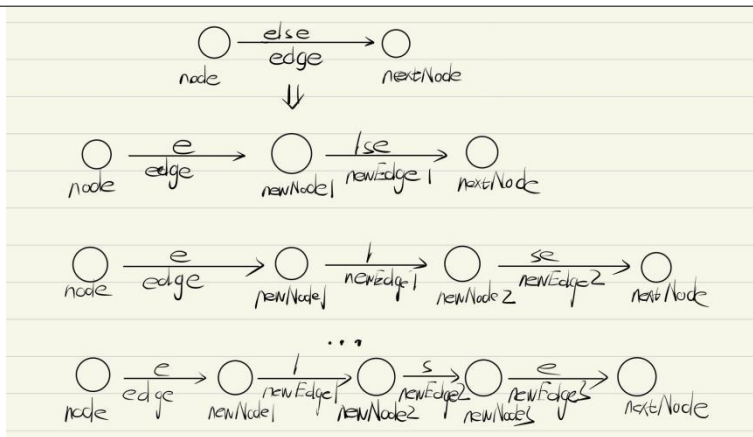 else
edge
node nextNode
e lse
edge newEdge1
node newNode1 nextNode
e l se
edge newEdge1 newEdge2
node newNode1 newNode2 nextNode
...
e l s e
edge newEdge1 newEdge2 newEdge3
node newNode1 newNode2 newNode3 nextNode